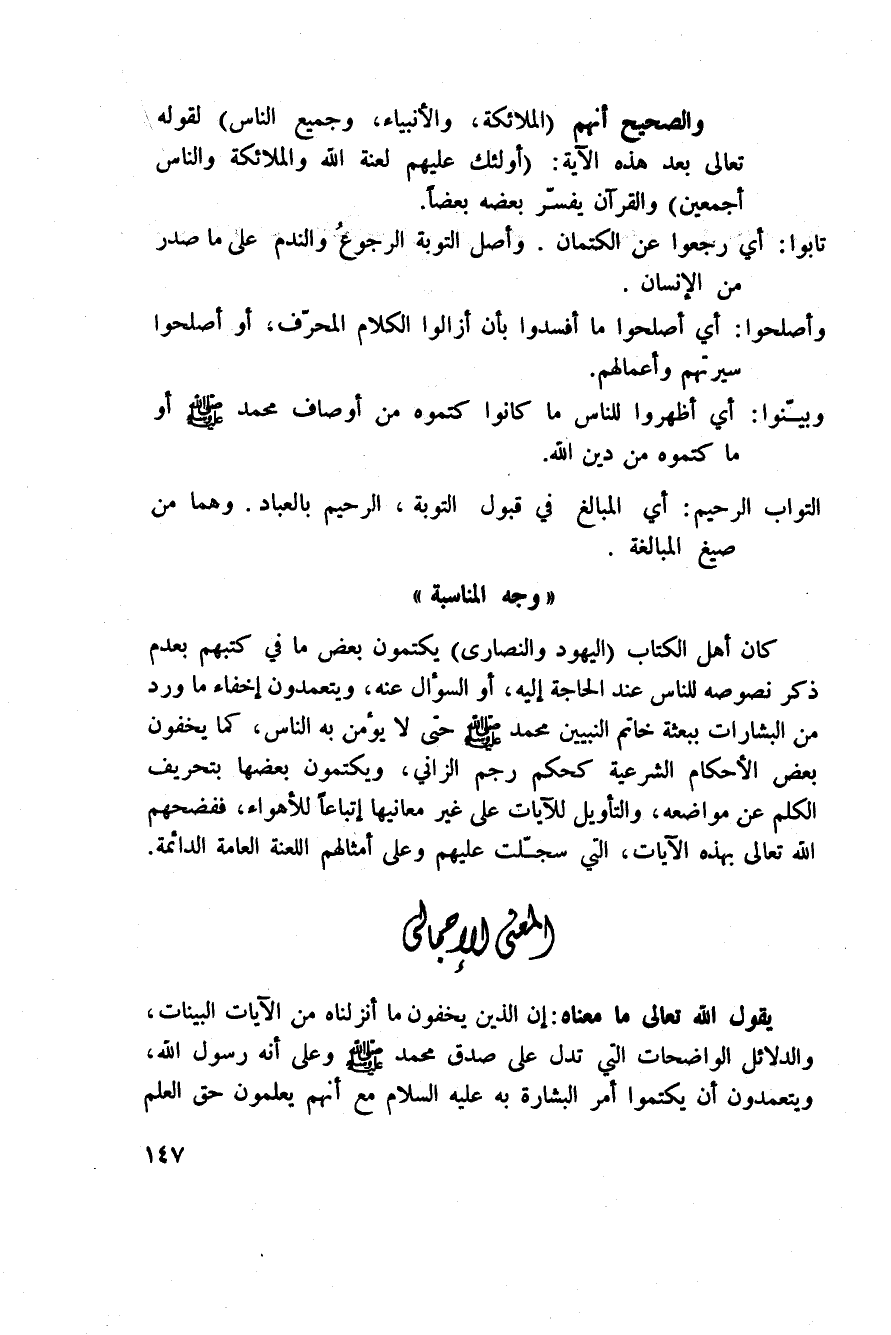 والصحيح أنهم (الملائكة، والأنبياء، وجميع الناس) لقوله
تعالى بعد هذه الآية: (أولئك عليهم لعنة الله والملائكة والناس
أجمعين) والقرآن يفسّر بعضه بعضاً.
تابوا: أي رجعوا عن الكتمان . وأصل التوبة الرجوعُ والندم على ما صدر
من الإنسان .
وأصلحوا: أي أصلحوا ما أفسدوا بأن أزالوا الكلام المحرّف، أو أصلحوا
سيرتهم وأعمالهم.
وبيـّنوا: أي أظهروا للناس ما كانوا كتموه من أوصاف محمد ﷺ أو
ما كتموه من دين الله.
التواب الرحيم: أي المبالغ في قبول التوبة ، الرحيم بالعباد . وهما من
صيغ المبالغة .
« وجه المناسبة »
كان أهل الكتاب (اليهود والنصارى) يكتمون بعض ما في كتبهم بعدم
ذكر نصوصه للناس عند الحاجة إليه، أو السؤال عنه، ويتعمدون إخفاء ما ورد
من البشارات ببعثة خاتم النبيين محمد ﷺ حتى لا يؤمن به الناس، كما يخفون
بعض الأحكام الشرعية كحكم رجم الزاني، ويكتمون بعضها بتحريف
الكلم عن مواضعه، والتأويل للآيات على غير معانيها إتباعاً للأهواء، ففضحهم
الله تعالى بهذه الآيات، التي سجـّلت عليهم وعلى أمثالهم اللعنة العامة الدائمة.
المعنى الإجمالي
يقول الله تعالى ما معناه: إن الذين يخفون ما أنزلناه من الآيات البينات،
والدلائل الواضحات التي تدل على صدق محمد ﷺ وعلى أنه رسول الله،
ويتعمدون أن يكتموا أمر البشارة به عليه السلام مع أنهم يعلمون حق العلم
١٤٧